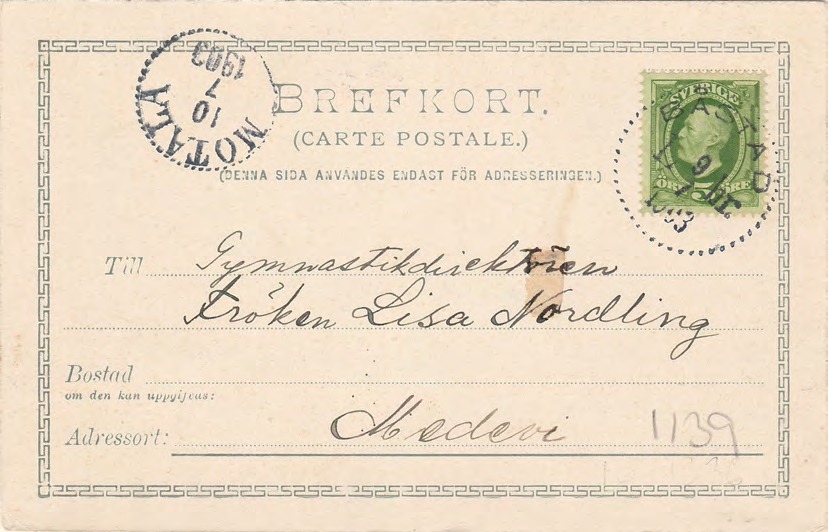 MOTALA
10
7
1903
BREFKORT.
(CARTE POSTALE.)
(DENNA SIDA ANVÄNDES ENDAST FÖR ADRESSERINGEN.)
SVERIGE
5
ÖRE ÖRE
BÅSTAD
9
7
1903
Till Gymnastikdirektören
Fröken Lisa Nordling
Bostad
om den kan uppgifvas:
Adressort: Medevi
1139